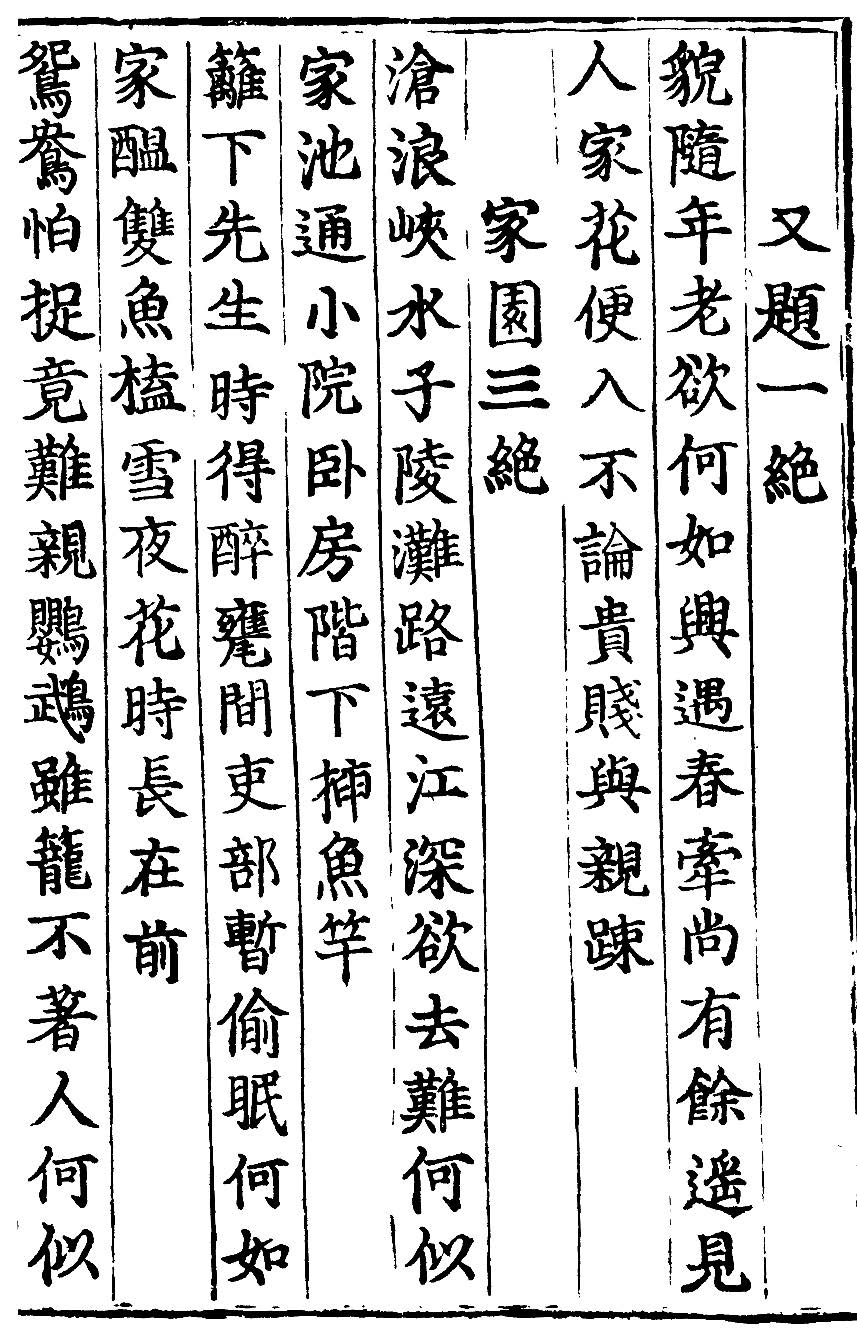 又題一絶
貌隨年老欲何如興遇春牽尚有餘遥見
人家花便入不論貴賤與親踈
家園三絶
滄浪峽水子陵灘路遠江深欲去難何似
家池通小院卧房階下揷魚竿
籬下先生時得醉甕間吏部暫偷眠何如
家醖雙魚榼雪夜花時長在前
鴛鴦怕捉竟難親鸚鵡雖籠不著人何似